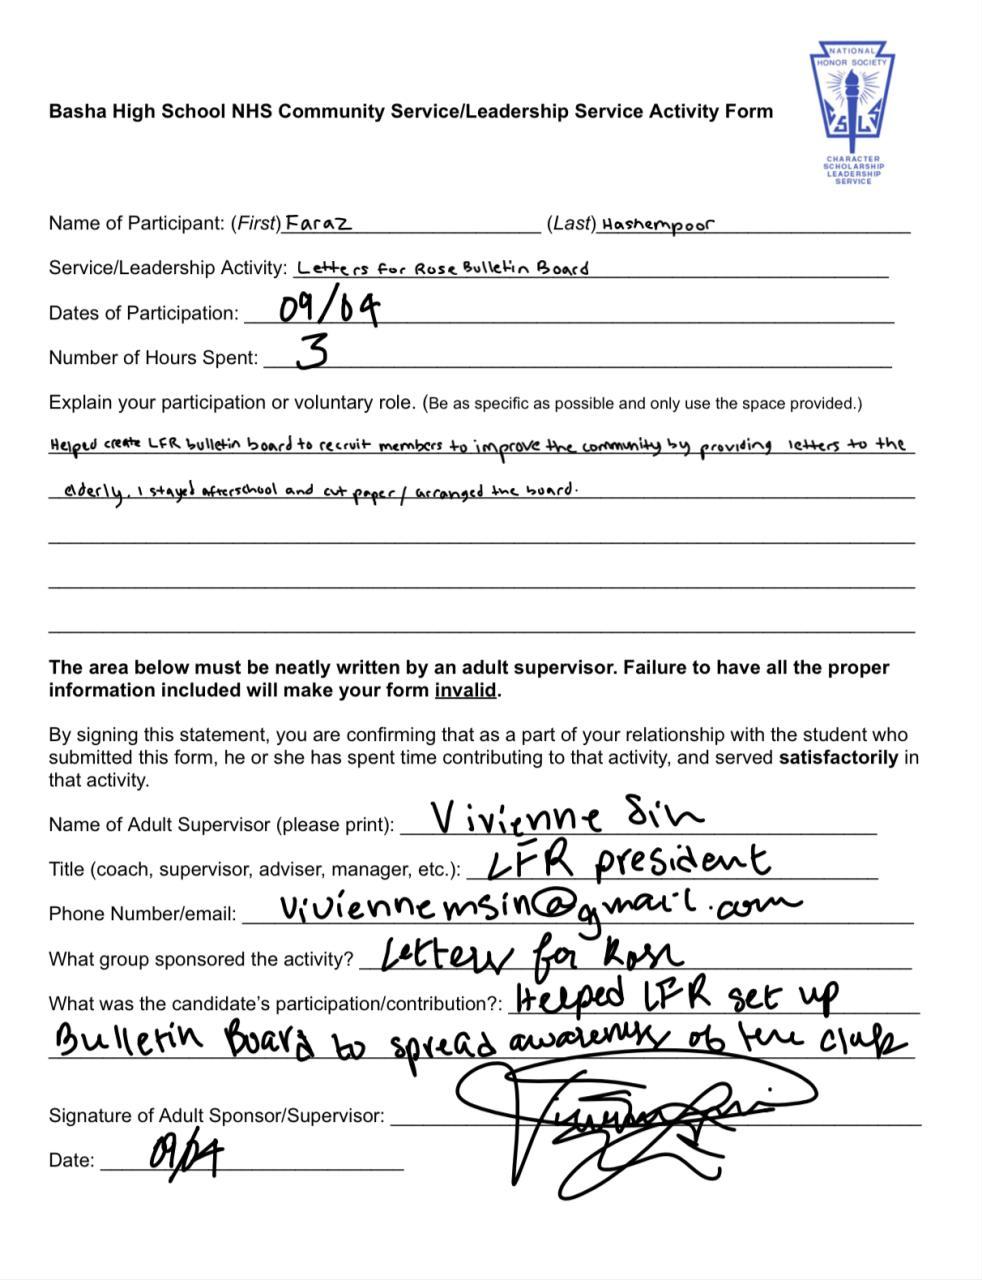 NATIONAL
HONOR SOCIETY
S L S
CHARACTER
SCHOLARSHIP
LEADERSHIP
SERVICE
Basha High School NHS Community Service/Leadership Service Activity Form
Name of Participant: (First) Faraz (Last) Hashempoor
Service/Leadership Activity: Letters for Rose Bulletin Board
Dates of Participation: 09/04
Number of Hours Spent: 3
Explain your participation or voluntary role. (Be as specific as possible and only use the space provided.)
Helped create LFR bulletin board to recruit members to improve the community by providing letters to the
elderly. I stayed afterschool and cut paper/ arranged the board.
The area below must be neatly written by an adult supervisor. Failure to have all the proper
information included will make your form invalid.
By signing this statement, you are confirming that as a part of your relationship with the student who
submitted this form, he or she has spent time contributing to that activity, and served satisfactorily in
that activity.
Name of Adult Supervisor (please print): Vivienne Sin
Title (coach, supervisor, adviser, manager, etc.): LFR president
Phone Number/email: viviennemsin@gmail.com
What group sponsored the activity? Letters for Rose
What was the candidate's participation/contribution?: Helped LFR set up
Bulletin Board to spread awareness of the club
Signature of Adult Sponsor/Supervisor:
Date: 09/04